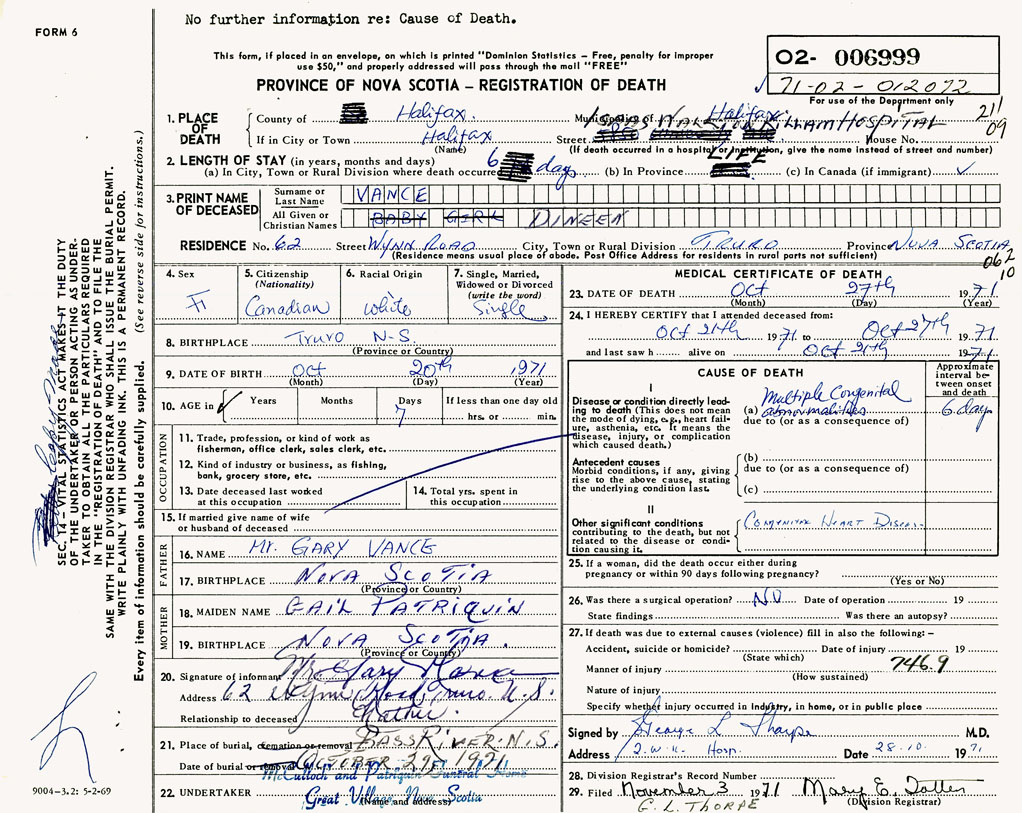 No further information re: Cause of Death.
FORM 6
This form, if placed in an envelope, on which is printed "Dominion Statistics – Free, penalty for improper
use $50," and properly addressed will pass through the mail "FREE"
PROVINCE OF NOVA SCOTIA – REGISTRATION OF DEATH
02- 006999
71-02-012072
For use of the Department only
211
09
1. PLACE OF DEATH
County of Halifax. Municipality of Halifax
If in City or Town Halifax Street HOSPITAL House No.
(Name) (If death occurred in a hospital or institution, give the name instead of street and number)
2. LENGTH OF STAY (in years, months and days)
(a) In City, Town or Rural Division where death occurred 6 days (b) In Province LIFE (c) In Canada (if immigrant)
3. PRINT NAME OF DECEASED
Surname or Last Name VANCE
All Given or Christian Names BABY GIRL DINEEN
RESIDENCE No. 62 Street WYNN ROAD City, Town or Rural Division TRURO Province NOVA SCOTIA
(Residence means usual place of abode. Post Office Address for residents in rural parts not sufficient)
062
10
4. Sex F
5. Citizenship (Nationality) Canadian
6. Racial Origin white
7. Single, Married, Widowed or Divorced (write the word) Single
8. BIRTHPLACE Truro N-S.
(Province or Country)
9. DATE OF BIRTH Oct 20th 1971
(Month) (Day) (Year)
10. AGE in Years Months Days 7 If less than one day old
hrs. or min.
OCCUPATION
11. Trade, profession, or kind of work as
fisherman, office clerk, sales clerk, etc.
12. Kind of industry or business, as fishing,
bank, grocery store, etc.
13. Date deceased last worked
at this occupation
14. Total yrs. spent in
this occupation
15. If married give name of wife
or husband of deceased
FATHER
16. NAME Mr. GARY VANCE
17. BIRTHPLACE NOVA SCOTIA
(Province or Country)
MOTHER
18. MAIDEN NAME GAIL PATRIQUIN
19. BIRTHPLACE NOVA SCOTIA.
(Province or Country)
20. Signature of informant Mr Gary Vance
Address 62 Wynn Road, Truro. N.S.
Relationship to deceased Father
21. Place of burial, cremation or removal BASS RIVER. N.S.
Date of burial or removal OCTOBER 29, 1971
22. UNDERTAKER McCulloch and Patriquin Funeral Home
Great Village Nova Scotia
(Name and address)
MEDICAL CERTIFICATE OF DEATH
23. DATE OF DEATH Oct 27th 1971
(Month) (Day) (Year)
24. I HEREBY CERTIFY that I attended deceased from:
Oct 21th 1971 to Oct 27th 1971
and last saw h alive on Oct 21th 1971
CAUSE OF DEATH
Approximate interval between onset and death
I
Disease or condition directly leading to death (This does not mean the mode of dying, e.g., heart failure, asthenia, etc. It means the disease, injury, or complication which caused death.)
(a) Multiple Congenital abnormalities 6 days
due to (or as a consequence of)
Antecedent causes
Morbid conditions, if any, giving rise to the above cause, stating the underlying condition last.
(b)
due to (or as a consequence of)
(c)
II
Other significant conditions contributing to the death, but not related to the disease or condition causing it.
CONGENITAL HEART DISEASE
25. If a woman, did the death occur either during
pregnancy or within 90 days following pregnancy?
(Yes or No)
26. Was there a surgical operation? NO Date of operation 19
State findings Was there an autopsy?
27. If death was due to external causes (violence) fill in also the following:–
Accident, suicide or homicide? Date of injury 19
(State which)
746.9
Manner of injury
(How sustained)
Nature of injury
Specify whether injury occurred in industry, in home, or in public place
Signed by George L Thorpe M.D.
Address I.W.K. Hosp. Date 28-10- 1971
28. Division Registrar's Record Number
29. Filed November 3 1971 Mary E.
G. L. THORPE (Division Registrar)
SEC. 14 – VITAL STATISTICS ACT MAKES IT THE DUTY
OF THE UNDERTAKER OR PERSON ACTING AS UNDER-
TAKER TO OBTAIN ALL THE PARTICULARS REQUIRED
IN THE "REGISTRATION OF DEATH" AND TO FILE THE
SAME WITH THE DIVISION REGISTRAR WHO SHALL ISSUE THE BURIAL PERMIT.
WRITE PLAINLY WITH UNFADING INK. THIS IS A PERMANENT RECORD.
Every item of information should be carefully supplied. (See reverse side for instructions.)
9004-3.2: 5-2-69